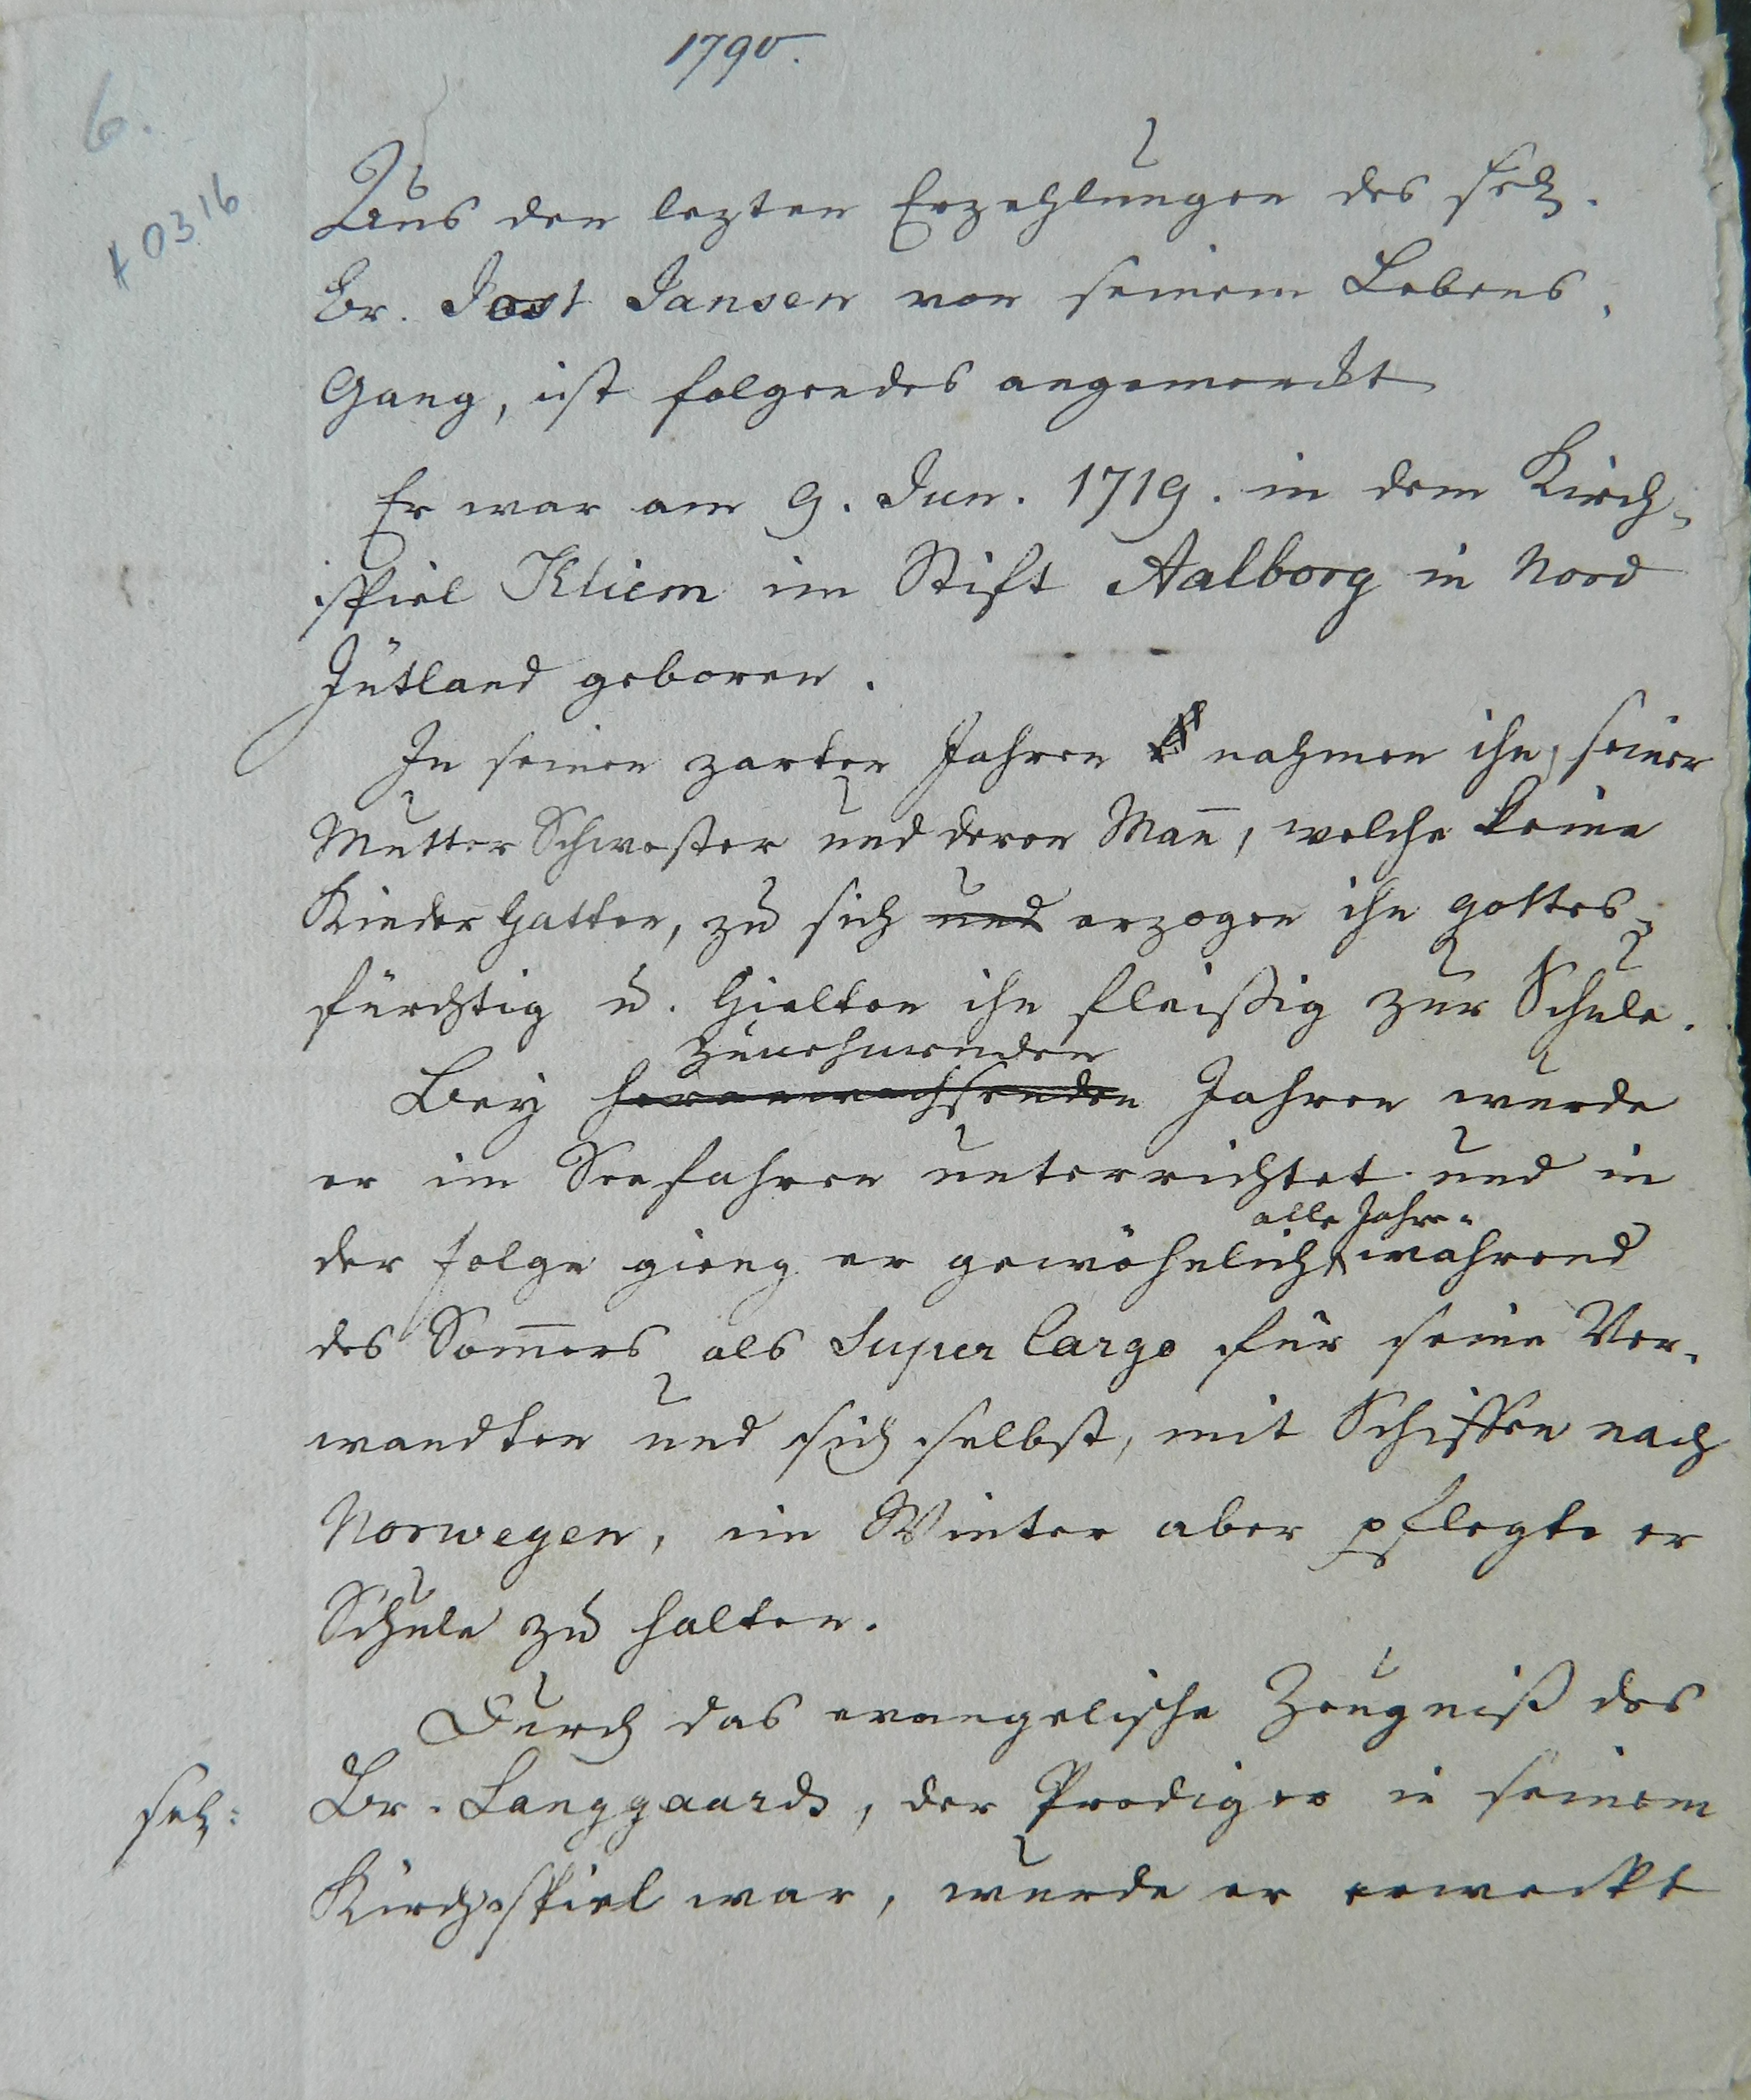 1790.
6.
+ 0316
Aus den lezten Erzehlungen des sel.
Br. Jost Jansen von seinem Lebens-
Gang, ist folgendes angemerckt
Er war am 9. Jun. 1719. in dem Kirch-
spiel Kliem im Stift Aalborg in Nord
Jütland geboren.
In seinen zarten Jahren nahmen ihn, seiner
Mutter Schwester und deren Mañ, welche keine
Kinder hatten, zu sich und erzogen ihn gottes-
fürchtig u. hielten ihn fleißig zur Schule.
zunehmenden
Bey heranwachsenden Jahren wurde
er im Seefahren unterrichtet und in
alle Jahr
der Folge gieng er gewöhnlich während
des Som̄ers als Super Cargo für seine Ver-
wandten und sich selbst, mit Schiffen nach
Norwegen, im Winter aber pflegte er
Schule zu halten.
Durch das evangelische Zeugniß des
sel: Br. Langgaards, der Prediger in seinem
Kirchspiel war, wurde er erweckt